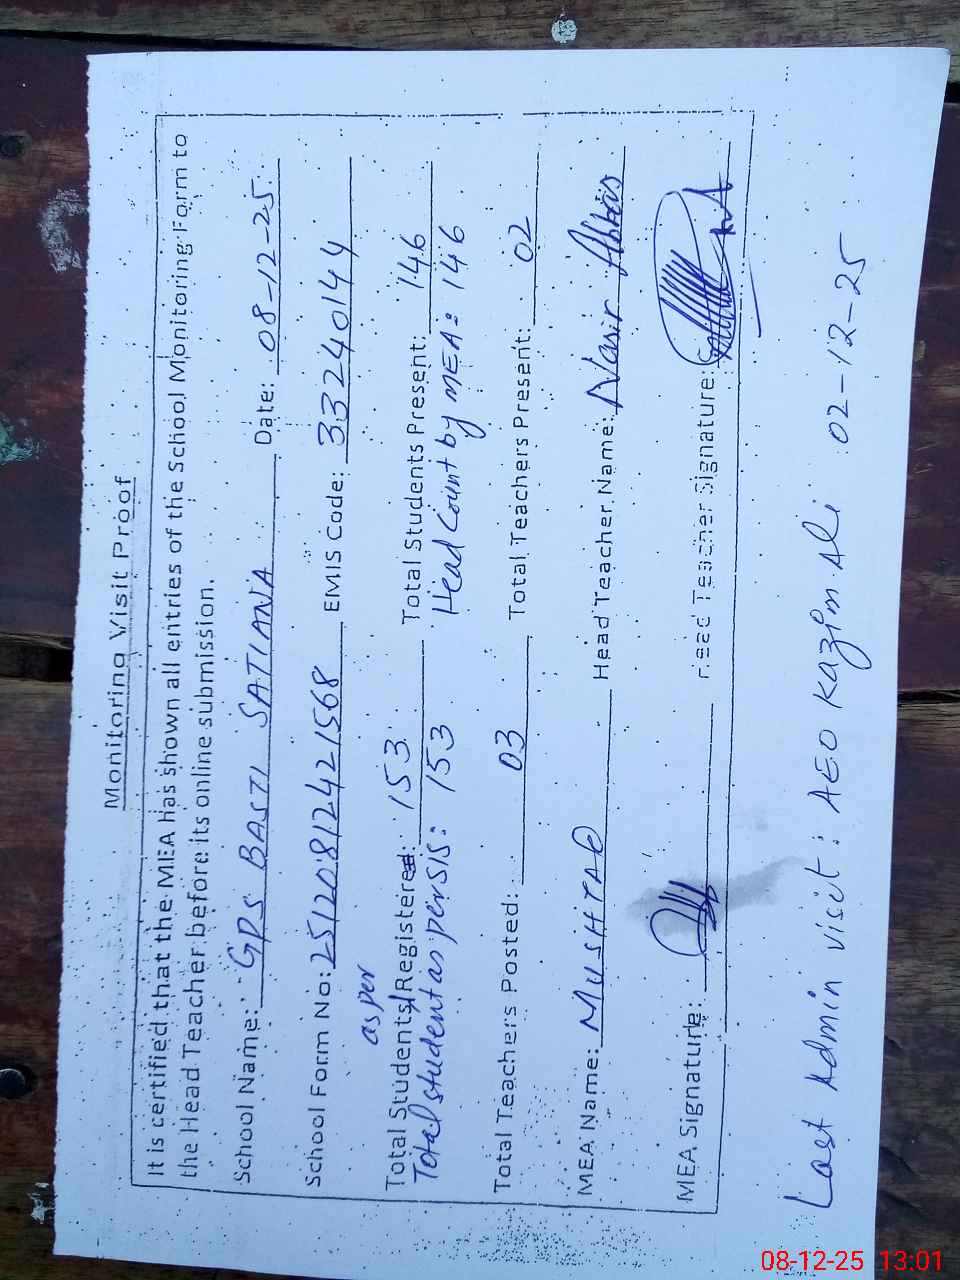 Monitoring Visit Proof
It is certified that the MEA has shown all entries of the School Monitoring Form to
the Head Teacher before its online submission.
School Name: GPS BASTI SATIANA Date: 08-12-25
School Form No: 2512081242 1568 EMIS Code: 33240144
as per
Total Students Registered: 153 Total Students Present: 146
Total student as per SIS: 153 Head Count by MEA: 146
Total Teachers Posted: 03 Total Teachers Present: 02
MEA Name: MUSHTAQ Head Teacher Name: Nasir Abbas
MEA Signature: Head Teacher Signature:
Last Admin visit: AEO Kazim Ali 02-12-25
08-12-25 13:01